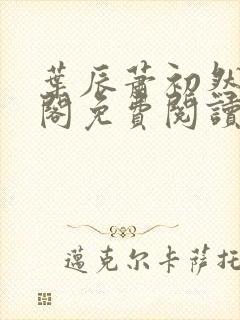 葉辰蕭初然
閣免費閱讀
邁克尔卡萨托